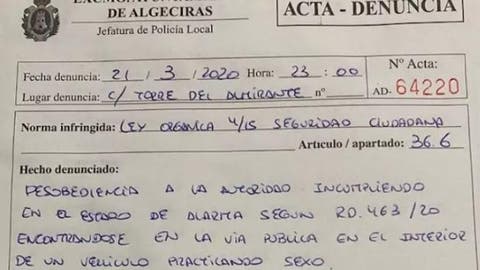 EXCMO. AYUNTAMIENTO
DE ALGECIRAS
Jefatura de Policía Local
ACTA - DENUNCIA
Fecha denuncia: 21 / 3 / 2020 Hora: 23 : 00
Lugar denuncia: C/ TORRE DEL ALMIRANTE nº
Nº Acta:
AD- 64220
Norma infringida: LEY ORGANICA 4/15 SEGURIDAD CIUDADANA
Artículo / apartado: 36.6
Hecho denunciado:
DESOBEDIENCIA A LA AUTORIDAD INCUMPLIENDO
EN EL ESTADO DE ALARMA SEGUN RD. 463/20
ENCONTRANDOSE EN LA VIA PUBLICA EN EL INTERIOR
DE UN VEHICULO PRACTICANDO SEXO.